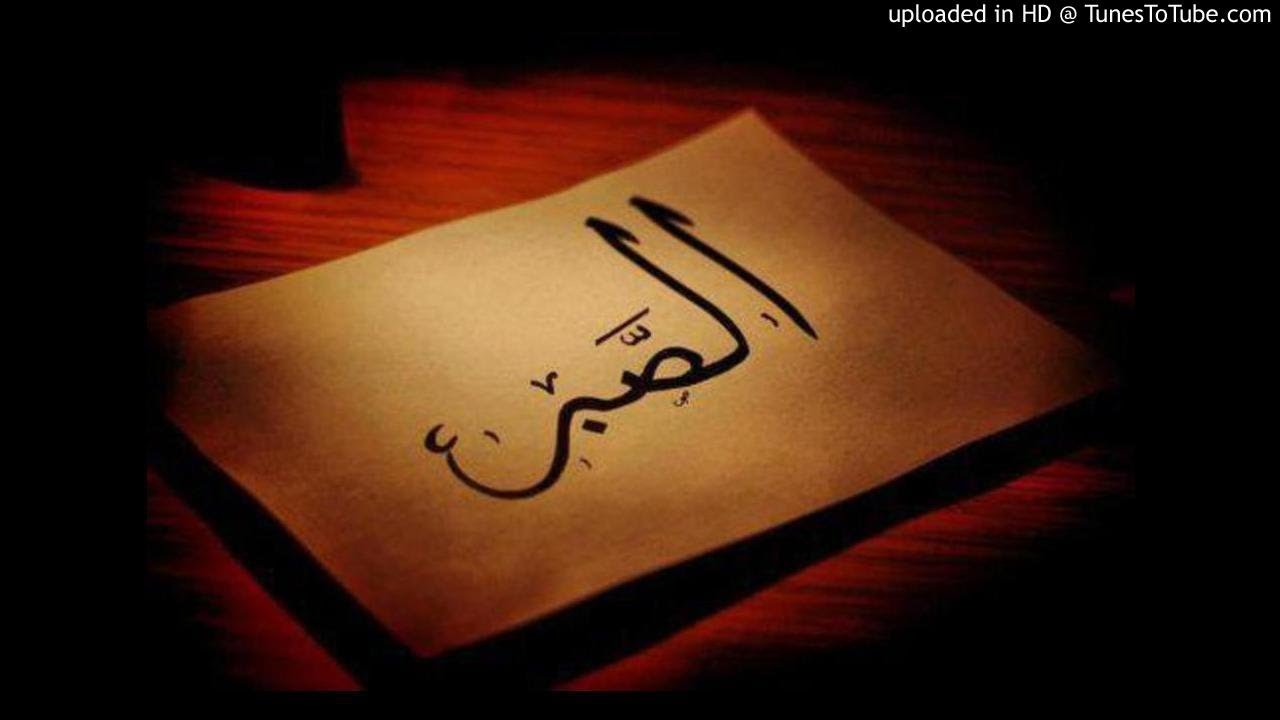 uploaded in HD @ TunesToTube.com
الصَّبْر